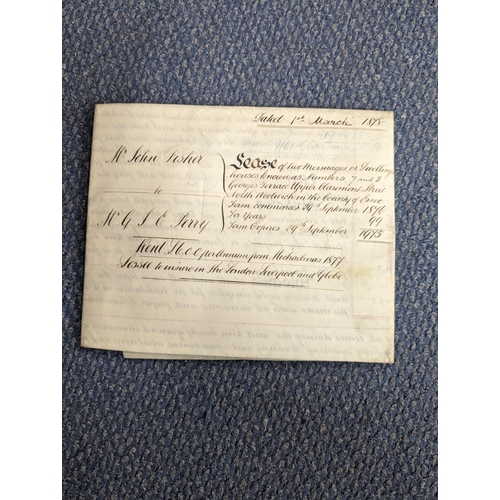 Dated 1st March 1878
Mr John Fisher
to
Mr G. S. E. Perry
Lease of two Messuages or Dwelling
houses Known as Numbers 7 and 8
Georges Terrace Upper Claremont Street
North Woolwich in the County of Essex
Term commences 29th September 1876
For Years 99
Term Expires 29th September 1975
Rent £6.0.0 per annum from Michaelmas 1877
Lessee to insure in the London Liverpool and Globe